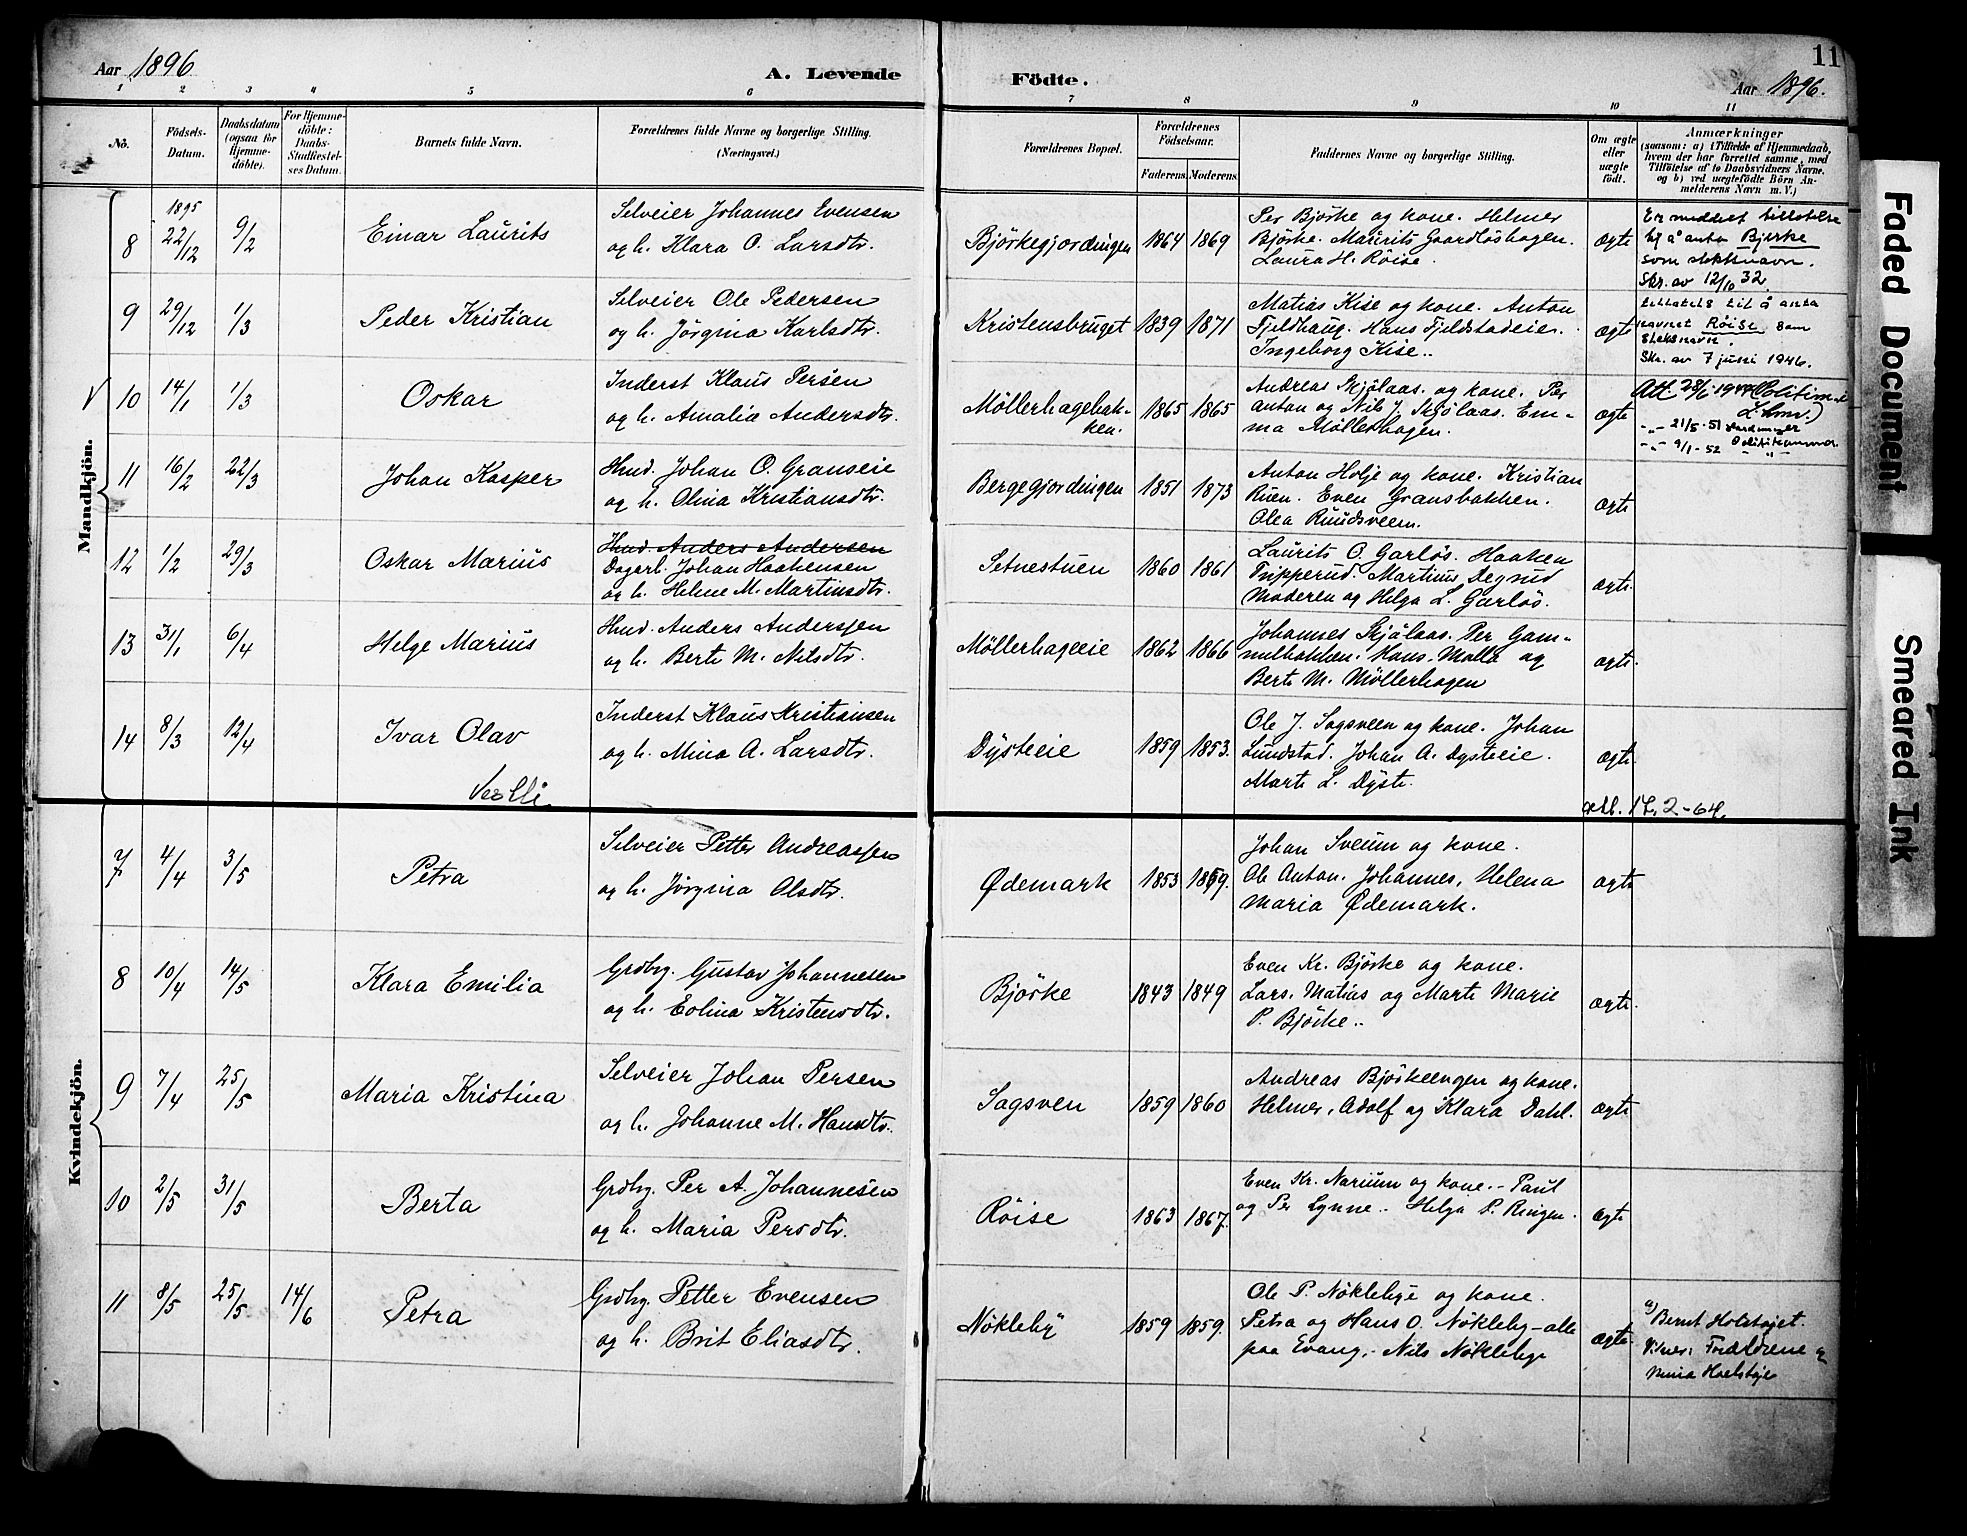 11
Aar 1896
A. Levende Födte.
Aar 1896.
1 2 3 4 5 6 7 8 9 10 11
No.
Födsels-
Datum.
Daabsdatum
(ogsaa for
Hjemme-
döbte).
For Hjemme-
döbte:
Daabs-
Stadfæstel-
ses Datum.
Barnets fulde Navn.
Forældrenes fulde Navne og borgerlige Stilling.
(Næringsvei.)
Forældrenes Bopæl.
Forældrenes
Födselsaar.
Faderens. Moderens.
Faddernes Navne og borgerlige Stilling.
Om ægte
eller
uægte
födt.
Anmærkninger
(saasom: a) i Tilfælde af Hjemmedaab,
hvem der har forrettet samme, med
Tilföielse af to Daabsvidners Navne,
og b) ved uægtefödte Börn An-
melderens Navn m. V.)
Mandkjön.
8 1895 22/12 9/2 Einar Laurits
Selveier Johannes Evensen
og h. Klara O. Larsdtr.
Björkegjordingen 1864 1869
Per Björke og kone. Helmer
Björke. Maurits Gaardløshagen.
Laura H. Röise.
ægte
Er meddelt tillatelse
til å anta Bjerke
som slektsnavn.
Skr. av 12/10 32.
9 29/12 1/3 Peder Kristian
Selveier Ole Pedersen
og h. Jörgina Karlsdtr.
Kristensbruget 1839 1871
Matias Kise og kone. Anton
Fjeldhaug. Hans Fjeldstadeier.
Ingeborg Kise..
ægte
tillatels til å anta
navnet Röise som
Slektsnavn.
Skr. av 7 juni 1946.
10 14/1 1/3 Oskar
Inderst Klaus Persen
og h. Amalia Andersdtr.
Möllerhagebak-
ken. 1865 1865
Andreas Skjölaas og kone. Per
Anton og Nils J. Skjölaas. Em-
ma Möllerhagen.
ægte
Att. 28/6
-"- 21/5-51
-"- 9/1-52
11 16/2 22/3 Johan Kasper
Hmd. Johan O. Granseie
og h. Olina Kristiansdtr.
Bergegjordingen 1851 1873
Anton Holje og kone. Kristian
Ruen. Even Gransbakken.
Olea Ruudsveen.
ægte
12 1/2 29/3 Oskar Marius
Hmd. Anders Andersen
Dagarb. Johan Haakensen
og h. Helene M. Martinsdtr.
Setnestuen 1860 1861
Laurits O. Garlös. Haaken
Tripperud. Martinus Degrud
Moderen og Helga L. Garlös.
ægte
13 31/1 6/4 Helge Marius
Hmd. Anders Anderssen
og h. Berte M. Nilsdtr.
Möllerhageeie 1862 1866
Johannes Skjölaas. Per Gam-
melbakken. Hans Malla og
Berte M. Möllerhagen
ægte
14 8/3 12/4 Ivar Olav
Inderst Klaus Kristiansen
og h. Mina A. Larsdtr.
Dysteeie 1859 1853.
Ole J. Sagsveen og kone. Johan
Lundstad. Johan A. Dysteeie.
Marte L. Dyste.
ægte
17.2-64.
Kvindekjön.
7 4/4 3/5 Petra
Selveier Petter Andreassen
og h. Jörgina Olsdtr.
Ødemark 1853 1859.
Johan Sveum og kone.
Ole Anton. Johannes, Helena
Maria Ødemark.
ægte
8 10/4 14/5 Klara Emilia
Grdbrg. Gustav Johannesen
og h. Eolina Kristensdtr.
Björke 1843 1849
Even Kr. Björke og kone.
Lars. Matias og Marte Marie
P. Björke..
ægte
9 7/4 25/5 Maria Kristina
Selveier Johan Persen
og h. Johanne M. Hansdtr.
Sagsven 1859 1860
Andreas Björkeengen og kone.
Helmer, Adolf og Klara Dahl.
ægte
10 2/5 31/5 Berta
Grdbrg. Per A. Johannesen
og h. Maria Persdtr.
Röise 1863 1867.
Even Kr. Narum og kone.- Paul
og Per Lynne.. Helga P. Ringen.
ægte
11 8/5 25/5 14/6 Petra
Grdbrg. Petter Evensen
og h. Brit Eliasdtr.
Nökleby 1859 1859.
Ole P. Nöklebye og kone.
Petra og Hans O. Nökleby-alle
paa Evang.- Nils Nöklebye
ægte
a) Bernt Holstöjet.
Vitner: Forældrene og
Mina Holstöje
Faded Document
Smeared Ink